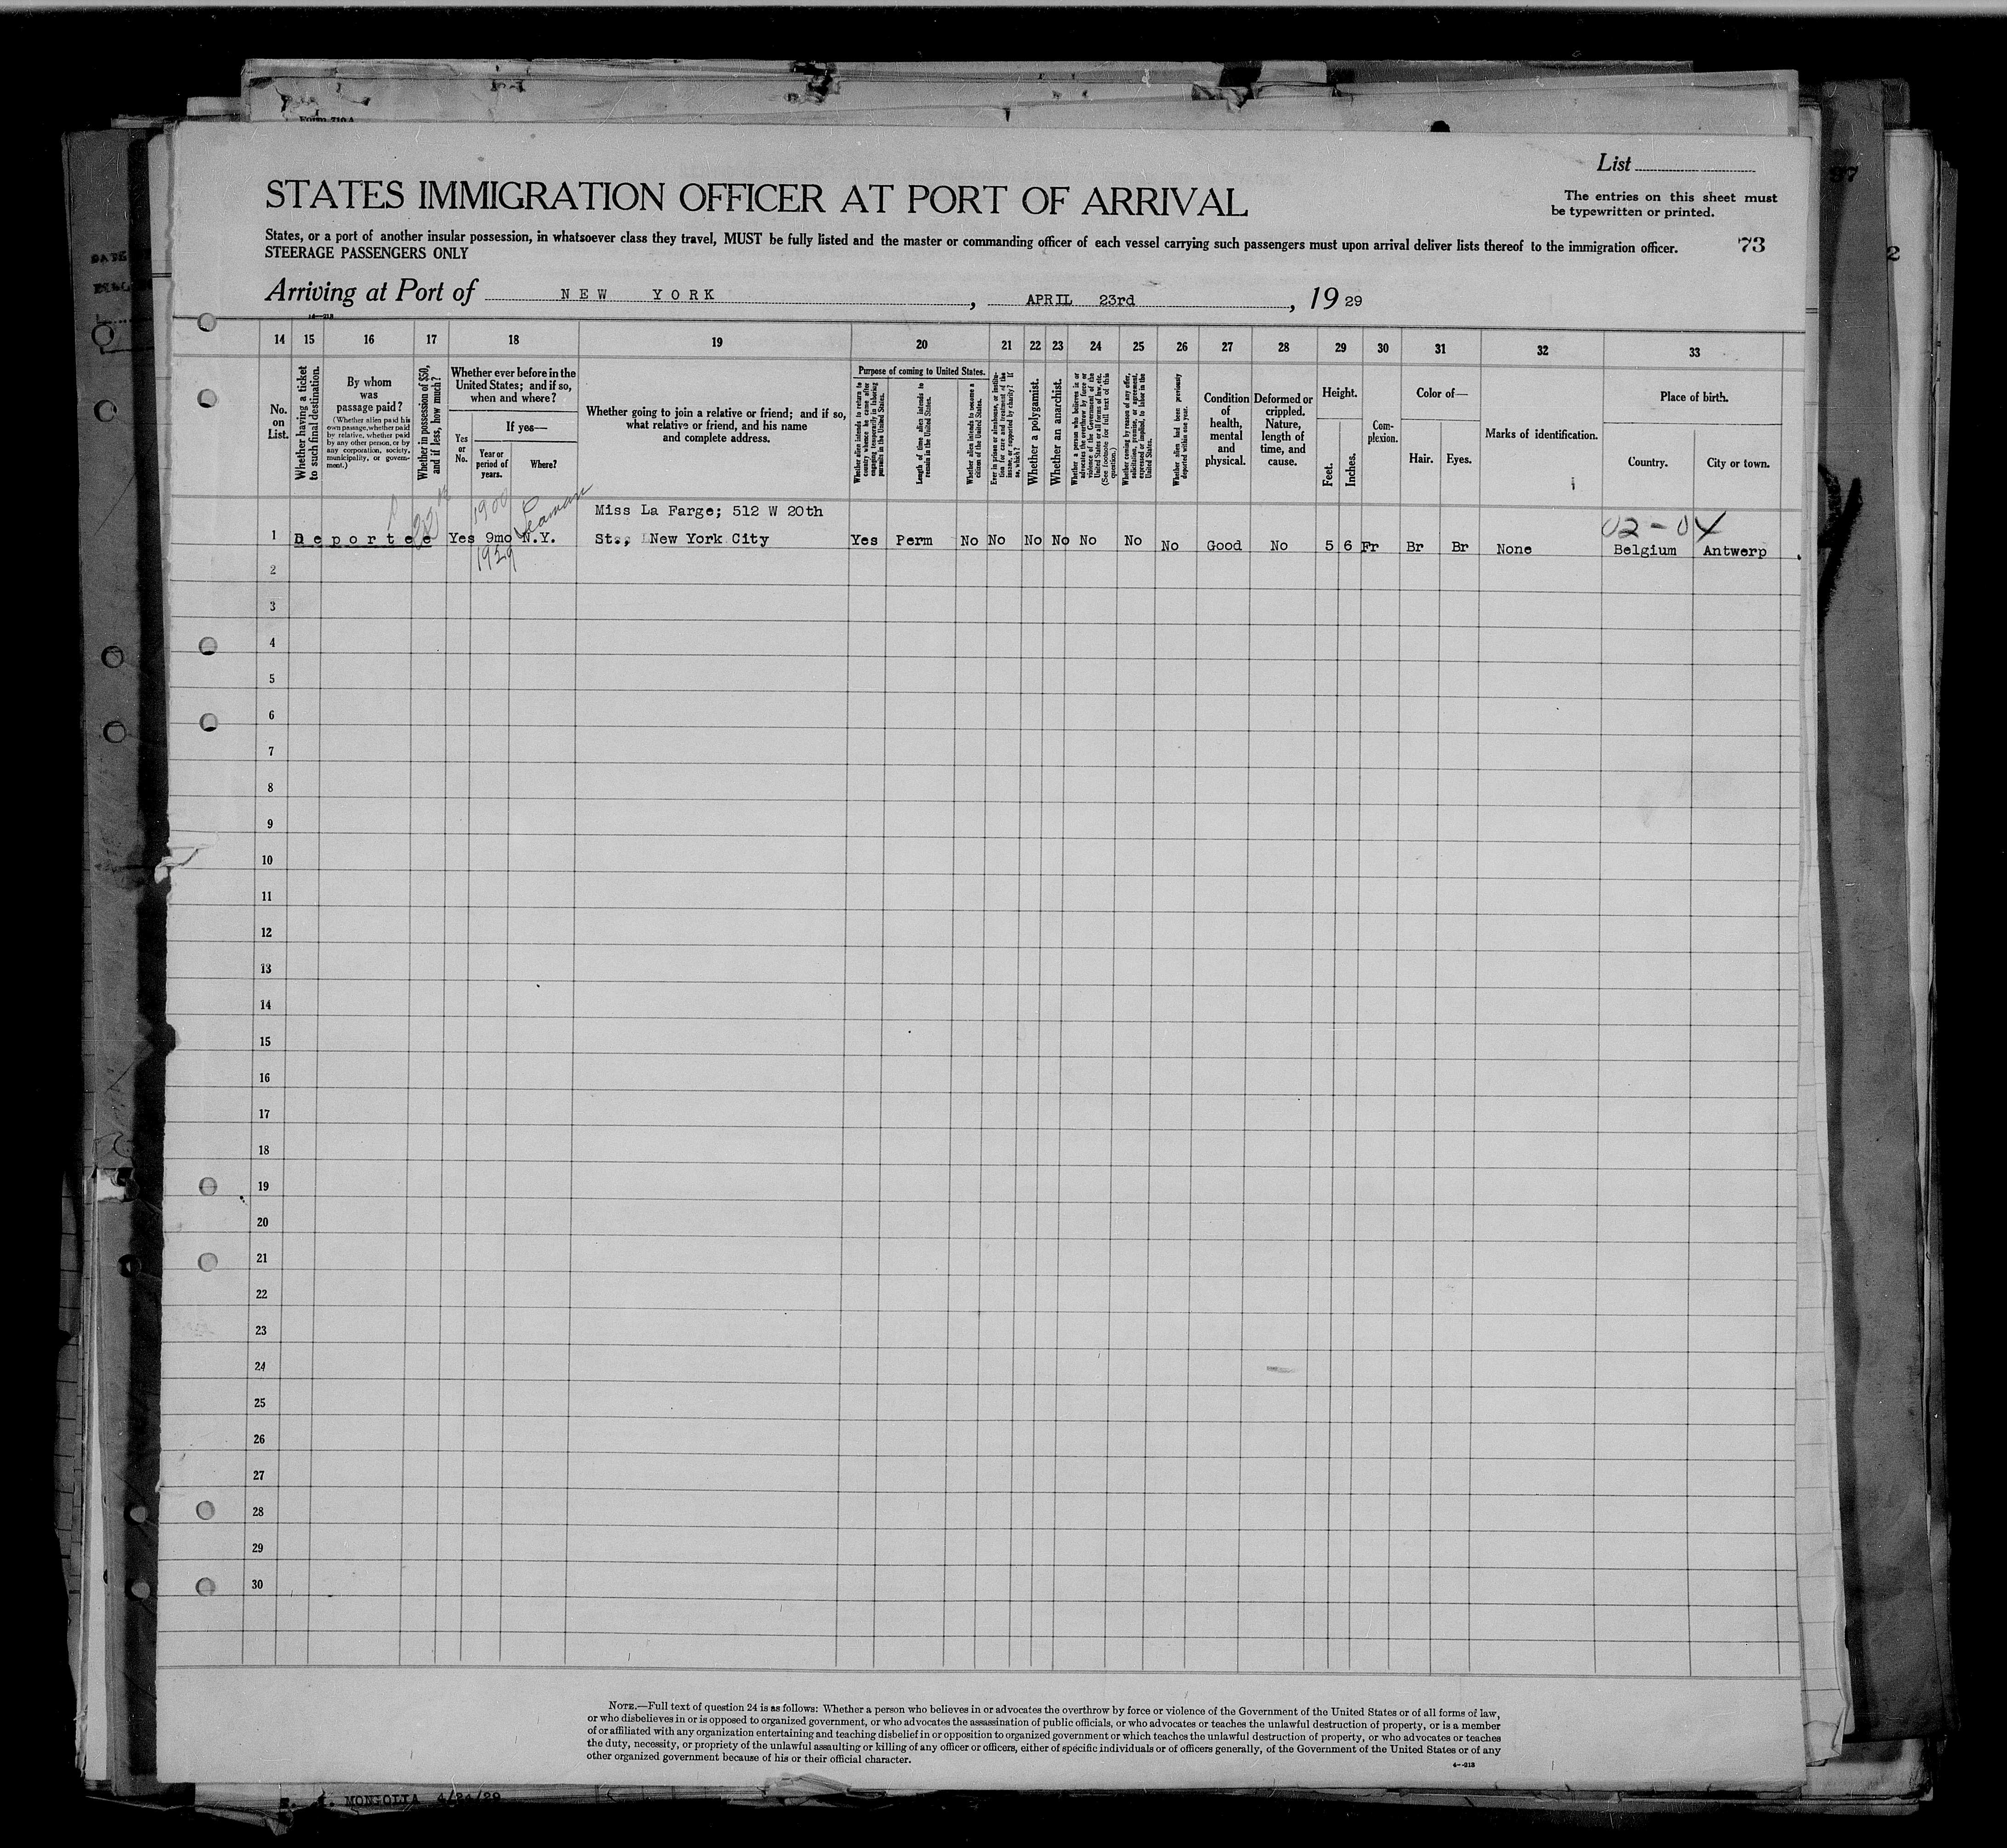 Form 710A
List
STATES IMMIGRATION OFFICER AT PORT OF ARRIVAL
The entries on this sheet must
be typewritten or printed.
States, or a port of another insular possession, in whatsoever class they travel, MUST be fully listed and the master or commanding officer of each vessel carrying such passengers must upon arrival deliver lists thereof to the immigration officer.
STEERAGE PASSENGERS ONLY
73
Arriving at Port of NEW YORK, APRIL 23rd, 19 29
14 15 16 17 18 19 20 21 22 23 24 25 26 27 28 29 30 31 32 33
No. on List.
Whether having a ticket to such final destination.
By whom was passage paid?
(Whether alien paid his own passage, whether paid by relative, whether paid by any other person, or by any corporation, society, municipality, or government.)
Whether in possession of $50, and if less, how much?
Whether ever before in the United States; and if so, when and where?
Yes or No.
If yes—
Year or period of years.
Where?
Whether going to join a relative or friend; and if so, what relative or friend, and his name and complete address.
Purpose of coming to United States.
Whether alien intends to return to country whence he came after engaging temporarily in laboring pursuits in the United States.
Length of time alien intends to remain in the United States.
Whether alien intends to become a citizen of the United States.
Ever in prison or almshouse, or institution for care and treatment of the insane, or supported by charity? If so, which?
Whether a polygamist.
Whether an anarchist.
Whether a person who believes in or advocates the overthrow by force or violence of the Government of the United States or all forms of law, etc. (See footnote for full text of this question.)
Whether coming by reason of any offer, solicitation, promise, or agreement, expressed or implied, to labor in the United States.
Whether alien had been previously deported within one year.
Condition of health, mental and physical.
Deformed or crippled. Nature, length of time, and cause.
Height.
Feet.
Inches.
Complexion.
Color of—
Hair.
Eyes.
Marks of identification.
Place of birth.
Country.
City or town.
1900 Seaman
Miss La Farge; 512 W 20th
02-04
1 Deportee Yes 9mo N.Y. St., New York City Yes Perm No No No No No No No Good No 5 6 Fr Br Br None Belgium Antwerp
1929
2
3
4
5
6
7
8
9
10
11
12
13
14
15
16
17
18
19
20
21
22
23
24
25
26
27
28
29
30
NOTE.—Full text of question 24 is as follows: Whether a person who believes in or advocates the overthrow by force or violence of the Government of the United States or of all forms of law,
or who disbelieves in or is opposed to organized government, or who advocates the assassination of public officials, or who advocates or teaches the unlawful destruction of property, or is a member
of or affiliated with any organization entertaining and teaching disbelief in or opposition to organized government or which teaches the unlawful destruction of property, or who advocates or teaches
the duty, necessity, or propriety of the unlawful assaulting or killing of any officer or officers, either of specific individuals or of officers generally, of the Government of the United States or of any
other organized government because of his or their official character.
MONGOLIA 4/24/29